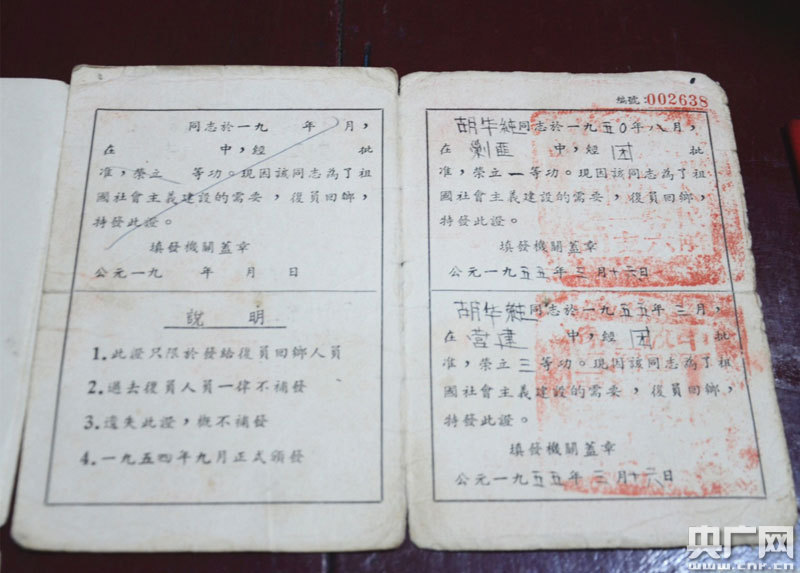 同志於一九 年 月,
在 中,經 批
准,榮立 等功。現因該同志為了祖
國社會主義建設的需要,復員回鄉,
特發此證。
填發機關蓋章
公元一九 年 月 日
說明
1.此證只限於發給復員回鄉人員
2.過去復員人員一律不補發
3.遺失此證,概不補發
4.一九五四年九月正式頒發
編號:002638
胡牛純同志於一九五〇年八月,
在剿匪中,經团批
准,榮立一等功。現因該同志為了祖
國社會主義建設的需要,復員回鄉,
特發此證。
填發機關蓋章
公元一九五五年三月十六日
胡牛純同志於一九五五年三月,
在营建中,經团批
准,榮立三等功。現因該同志為了祖
國社會主義建設的需要,復員回鄉,
特發此證。
填發機關蓋章
公元一九五五年三月十六日
央广网
www.cnr.cn